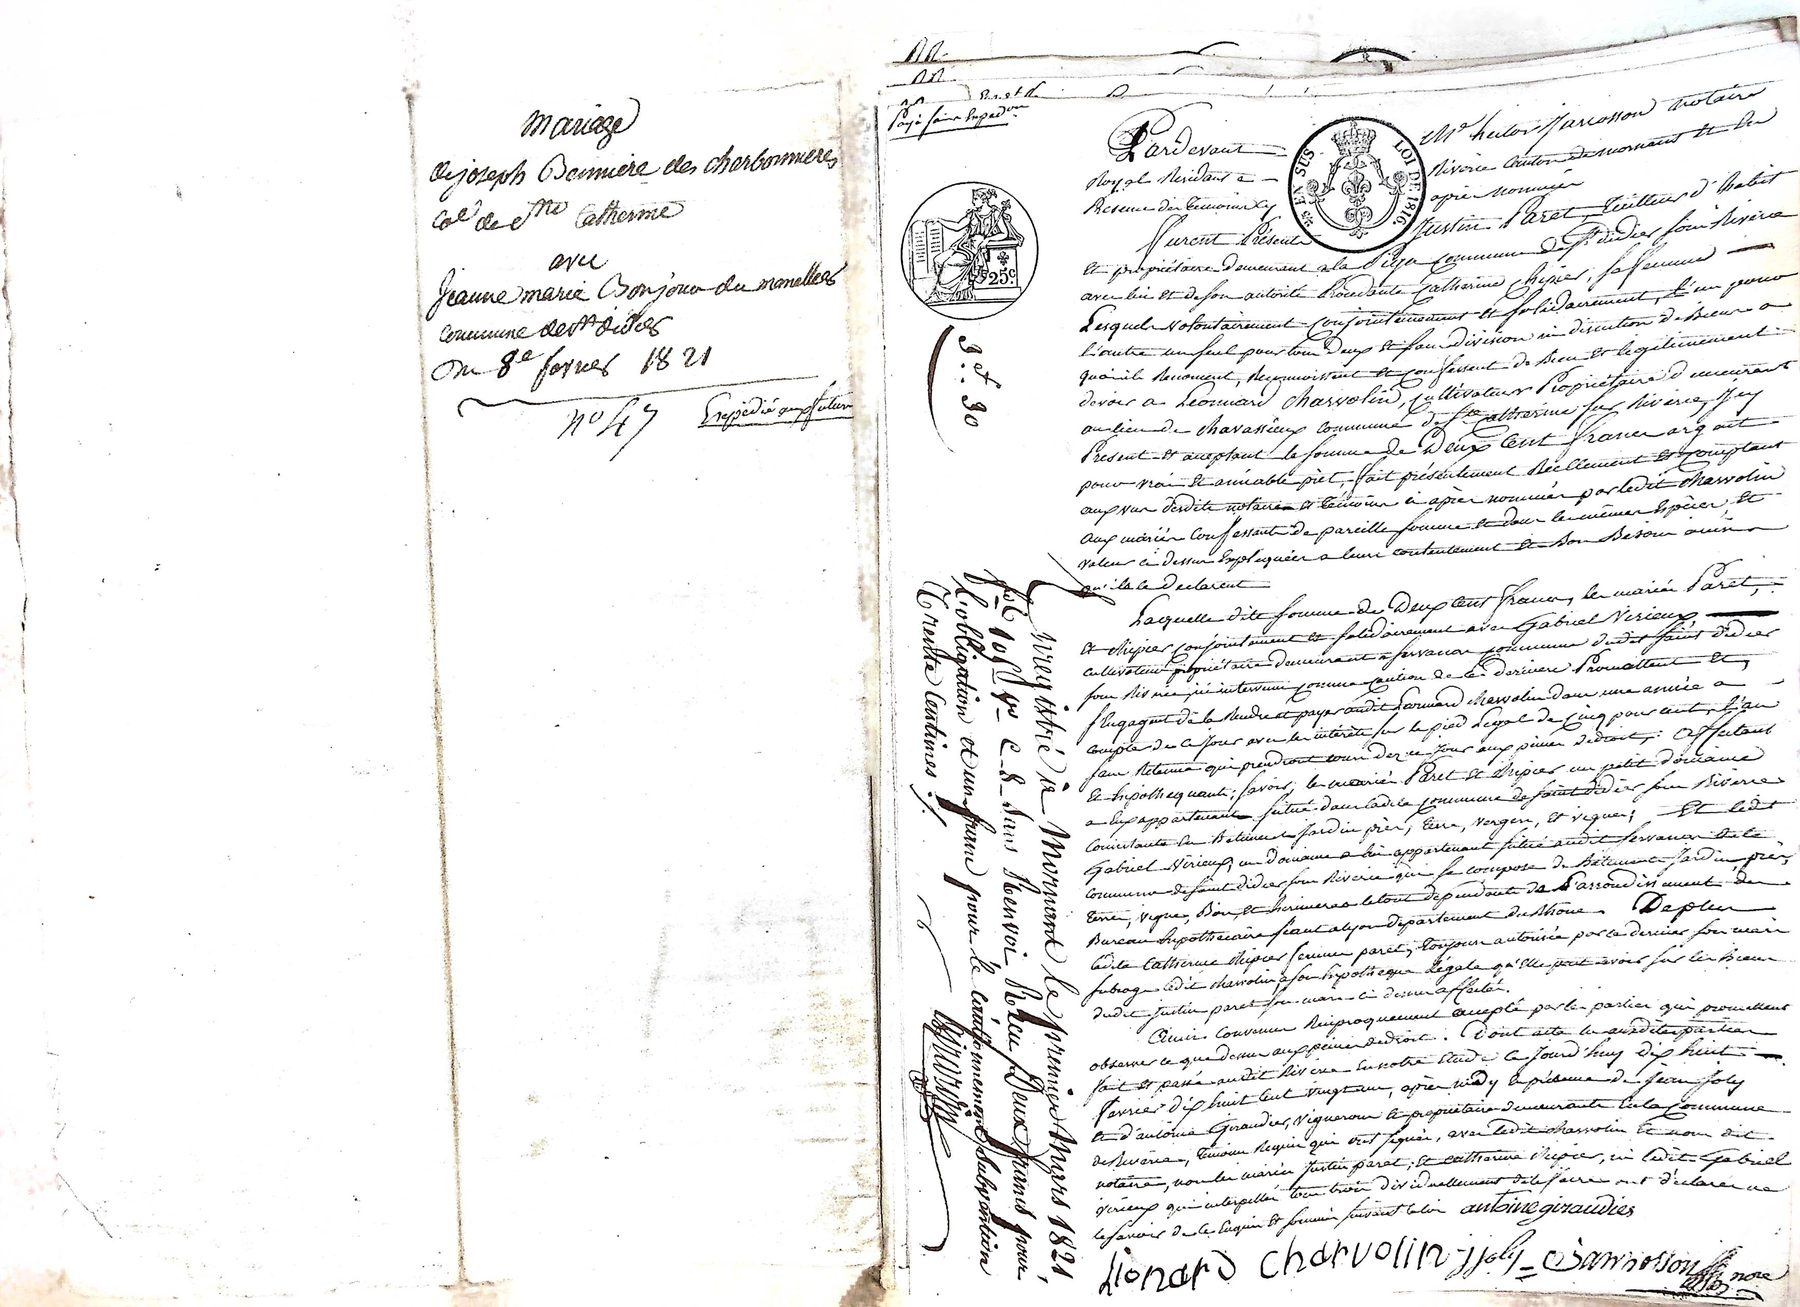 Mariage
de joseph Bonniere des charbonnieres
Coe de Ste Catherine
avec
Jeanne marie Bonjour du
commune de st didier
Du 8e fevrier 1821
No 47 Expédié au futur
Payé sans Exped.on
EN SUS LOI DE 1816
25c
3 et
3 .. 30
Pardevant Me hector Jarrosson notaire
Royal Residant a Riverie Canton de mornant Et En
Presence des temoins cy après nommés
Furent Présents Justin Paret, Tailleur d'habits
Et propriétaire demeurant a la commune de St didier sous Riverie
avec lui Et de son autorité Procedante Catherine Chipier, sa femme
Lesquels volontairement conjointement Et solidairement, l'un pour
l'autre un seul pour tous deux Et sans division ni discution de Biens a
quoi ils Renoncent, Reconnoissent Et confessent de Bien Et legitimement
devoir a Léonnard Charvolin, Cultivateur Propriétaire demeurant
au lieu de Chavassieux commune de Ste Catherine sur Riverie, icy
Present Et acceptant la somme de Deux Cent francs argent
pour vrai Et amiable prêt, fait présentement Réellement Et comptant
aux vus desdits notaire Et Témoins ci après nommés par ledit Charvolin
aux mariés Confessants de pareille somme Et dans les mêmes Espèces, Et
valeur ci dessus Expliquées a leur contentement Et Bon Besoin ainsi
qu'ils le Déclarent
Laquelle dite somme de Deux Cent francs, les mariés Paret,
Et Chipier conjointement Et solidairement avec Gabriel Virieux
cultivateur propriétaire demeurant a servanon commune dudit Saint Didier
sous Riverie, ici intervenu comme caution de ces derniers Promettent Et
s'Engagent de la Rendre et payer audit Leonnard Charvolin dans une année a
compter de ce Jour avec les intérêts sur le pied Legal de Cinq pour cent, l'an
sans Retenue qui prendront cours dez ce Jour aux peines de droit; affectant
Et hypothequant; savoir, les mariés Paret Et Chipier un petit domaine
a Eux appartenant situé dans ladite commune de Saint Didier sous Riverie
Consistante En Batiments Jardin prés, Terre, Verger, Et vignes; Et ledit
Gabriel Virieux, un Domaine a lui appartenant situé audit servanon dite
commune de Saint Didier sous Riverie qui se compose de Batiments Jardin prés,
terre, vigne, Bois, Et hermeres le tout dépendante de l'arrondissement du
Bureau hypothécaire séant a Lyon département du Rhône. De plus
ladite Catherine Chipier femme paret, Toujours autorisée par ce dernier son mari
subroge ledit Charvolin a son hypotheque légale qu'Elle peut avoir sur les Biens
dudit Justin paret son mari ci dessus affectés.
Ainsi Convenu Réciproquement accepté par les parties qui promettent
observer ce que dessus aux peines de droit. Dont acte les susdites parties
fait Et passé audit Riverie En notre Etude ce Jourd'huy dix huit
fevrier dix huit cent vingt un, après midy En présence de Jean Joly
Et d'antoine Giraudier, vignerons Et propriétaires demeurants En la Commune
de Riverie, Temoins Requis qui ont signés, avec ledit Charvolin Et nous dit
notaire, non les mariés Justin paret, Et Catherine Chipier, ni ledit Gabriel
Virieux qui interpellés tous trois dividuellement de le faire ont declarés ne
le savoir de ce Enquis Et sommés suivant la loi antoine giraudier
Lionard Charvolin j joly Jarrosson
nore
Enregistré à Mornant le premier Mars 1821
fol. 105 Vo C. 8 sans Renvoi Reçu Deux francs pour
l'obligation et un franc pour le Cautionnement subvention
trente Centimes ./.